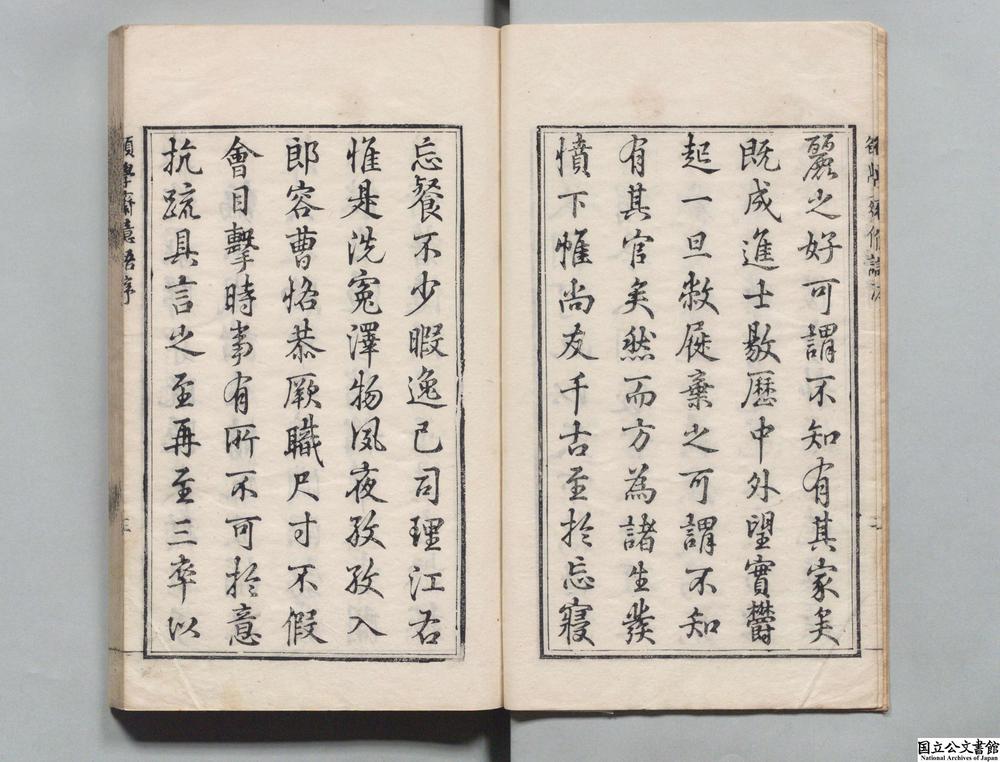 麗之好可謂不知有其家矣
既成進士敭歷中外望實欝
起一旦敝屣棄之可謂不知
有其官矣然而方為諸生發
憤下帷尚友千古至於忘寢
忘餐不少暇逸已司理江右
惟是洗冤澤物夙夜孜孜入
郎容曹恪恭厥職尺寸不假
會目擊時事有所不可於意
抗疏具言之至再至三卒以
三
国立公文書館
National Archives of Japan